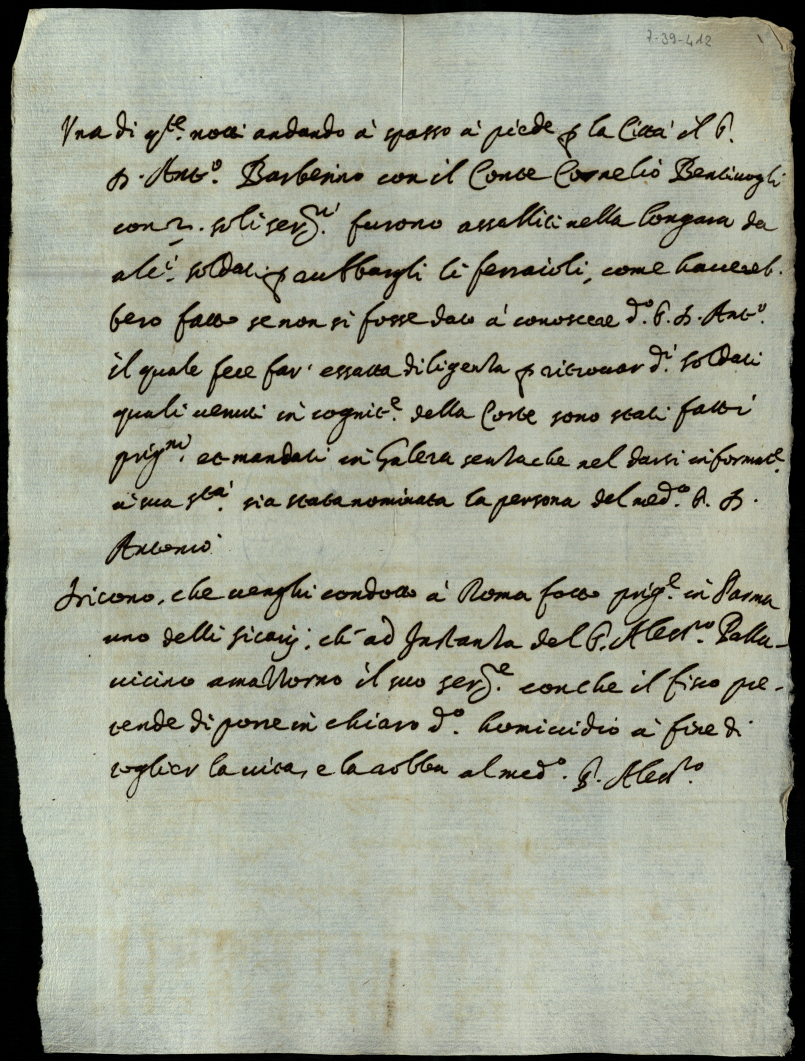 7-39-412
Una di q.te notti andando à spasso à piede p la Città il S.
D. Ant.o Barberino con il Conte Cornelio Bentivogli
con 2. soli ser.ri furono assaltiti nella longara da
alc.i soldati p rubbargli li ferraioli, come haverebbero
bero fatto se non si fosse dato à conoscere d.o S. D. Ant.o
il quale fece far' essatta diligenza p ritrovar d.i soldati
quali venuti in cognit.e della Corte sono stati fatti
prig.ni et mandati in Galera senza che nel darsi informat.e
à sua S.tà sia stata nominata la persona del med.o S. D.
Antonio
Dicono, che venghi condotto à Roma fatto prig.e in Parma
uno delli sicarij, ch' ad Instanza del S. Aless.ro Palla-
vicino amazzorno il suo ser.re con che il fisco pre-
tende di porre in chiaro d.o homicidio à fine di
toglier la vita, e la robba al med.o S. Aless.ro